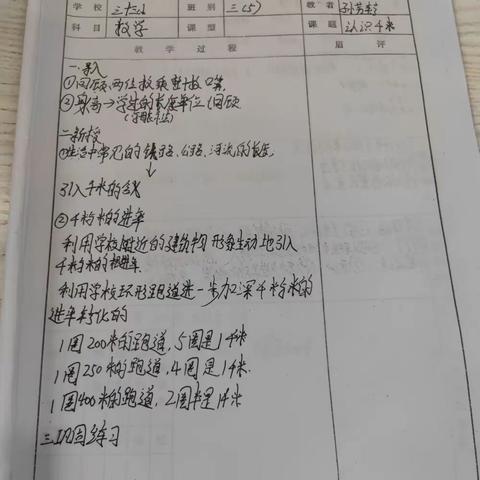 学校 三六小 班别 三(5) 教者
科目 数学 课型 课题 认识千米
教学过程 眉评
一.导入
①回顾两位数乘整十数口算,
②身高→学过的长度单位(回顾
二.新授
①生活中常见的 公路、河流的长度。
引入千米的含义
②千米和米的进率
利用学校附近的建筑物形象生动地引入
千米和米的进率
利用学校环形跑道进一步加深千米和米的
进率转化的
1圈200米的跑道,5圈是1千米
1圈250米的跑道,4圈是1千米.
1圈400米的跑道,2圈半是1千米
三.巩固练习